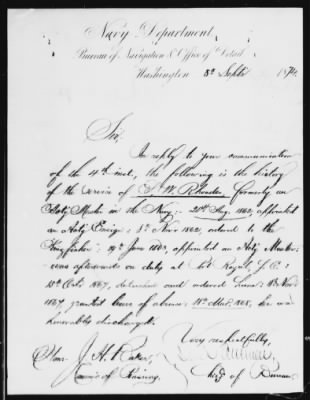 Navy Department,
Bureau of Navigation & Office of Detail
Washington 8th Septr 1870.
Sir,
In reply to your communication
of the 4th inst, the following is the history
of the service of W. Rhoades, formerly an
Actg Master in the Navy:- 20th Aug. 1862, appointed
an Actg Ensign; Novr 1862, ordered to the
; June 1863, appointed an Actg Master;
was afterwards on duty at Port Royal, S.C.;
10th Octr 1867, detached and ordered home;
1867, granted leave of absence; Mar. 1868, he was
honorably discharged.
Very respectfully,
Hon. J. H. Baker,
Chief of Bureau